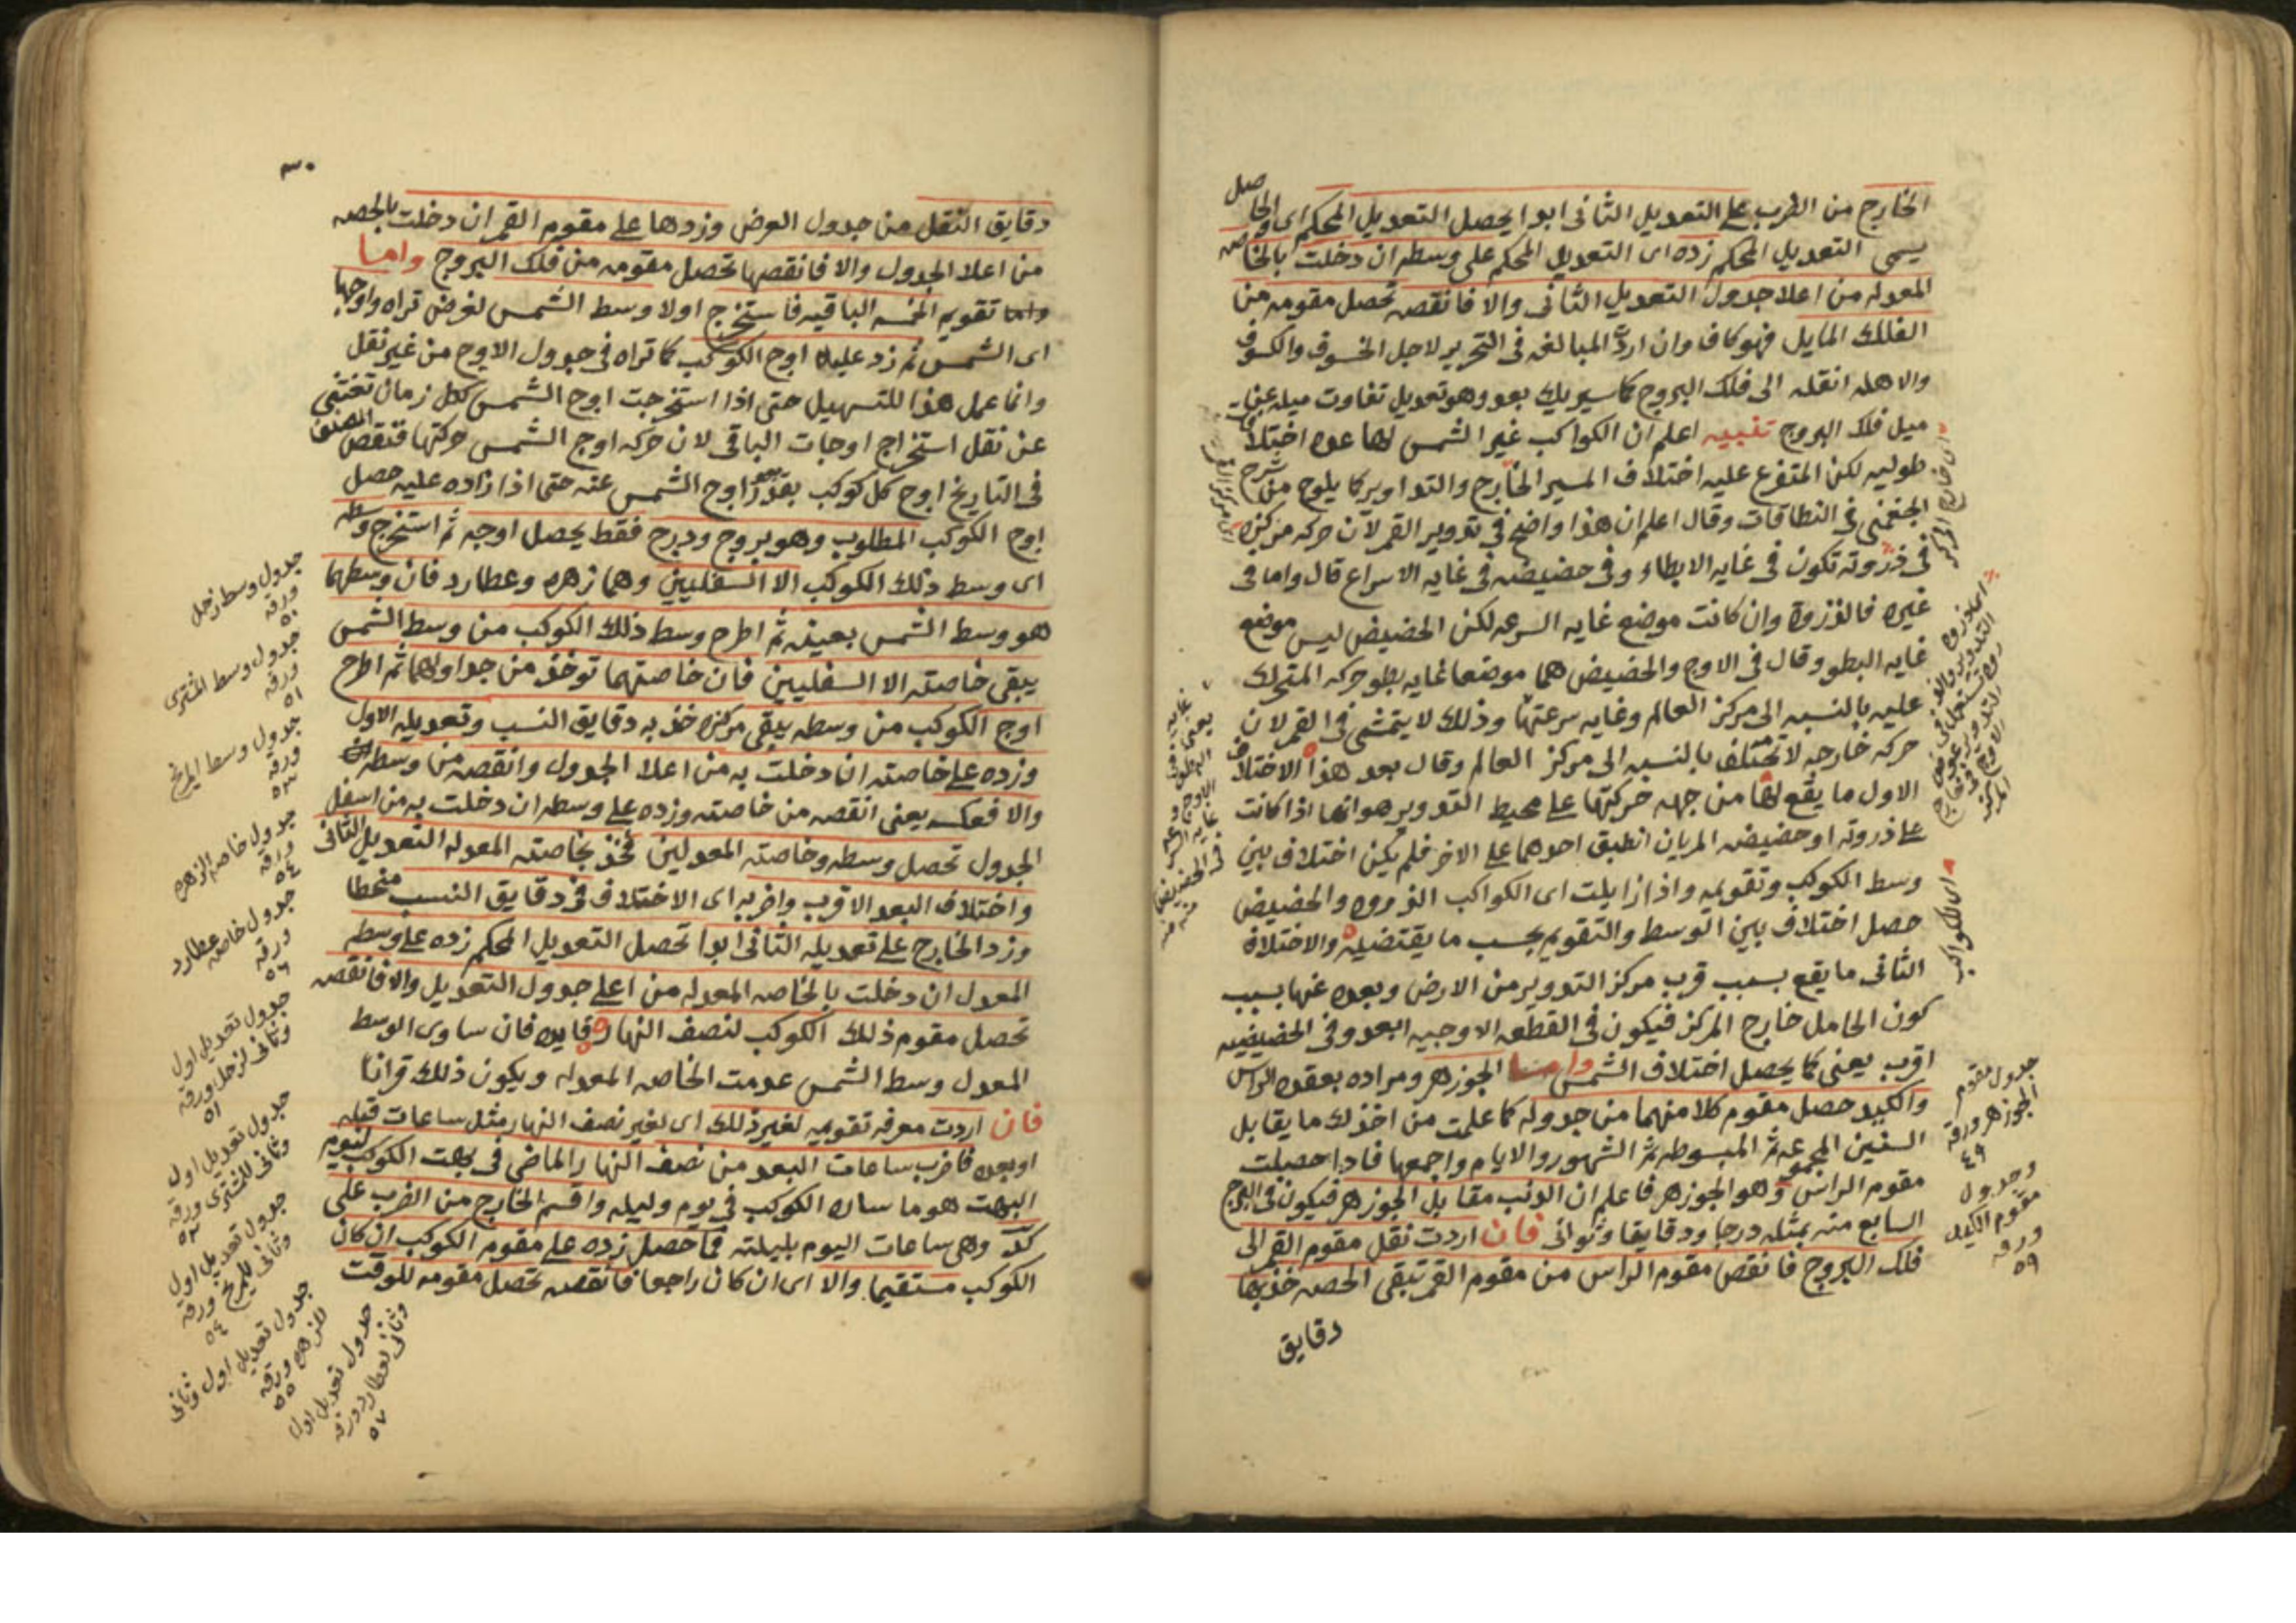 الخارج من الضرب على التعديل الثانى ابدا يحصل التعديل المحكم اى الحاصل
يسمى التعديل المحكم زده اى التعديل المحكم على وسطه ان دخلت بالخاصه
المعدله من اعلا جدول التعديل الثانى والا فانقصه تحصل مقومه من
الفلك المايل فهو كاف وان اردت المبالغه فى التحرير لاجل الخسوف والكسوف
والاهله انقله الى فلك البروج كما سيريك بعد وهو تعديل تفاوت ميله عن
ميل فلك البروج تنبيه اعلم ان الكواكب غير الشمس لها عده اختلافات
طوليه لكن المتفرع عليه اختلاف المسير الخارج والتداوير كما يلوح من شرح
الجغمنى فى النطاقات وقال اعلم ان هذا واضح فى تدوير القمر لان حركه مركزه
فى ذروته تكون فى غايه الابطاء وفى حضيضه فى غايه الاسراع قال واما فى
غيره فالذروة وان كانت موضع غايه السرعه لكن الحضيض ليس موضع
غايه البطو وقال فى الاوج والحضيض هما موضعا غايه بطو حركه المتحرك
عليه بالنسبه الى مركز العالم وغايه سرعتها وذلك لا يتمشى فى القمر لان
حركه خارجه لا تختلف بالنسبه الى مركز العالم وقال بعد هذا الاختلاف
الاول ما يقع لها من جهه حركتها على محيط التدوير هو انها اذا كانت
على ذروته او حضيضه المريان انطبق احدهما على الاخر فلم يكن اختلاف بين
وسط الكوكب وتقويمه واذا زايلت اى الكواكب الذروه والحضيض
حصل اختلاف بين الوسط والتقويم بحسب ما يقتضيه والاختلاف
الثانى ما يقع بسبب قرب مركز التدوير من الارض وبعده عنها بسبب
كون الحامل خارج المركز فيكون فى القطعه الاوجيه ابعد وفى الحضيضيه
اقرب يعنى كما يحصل اختلاف الشمس واما الجوزهر ومراده بعقده الراس
والكيد حصل مقوم كلا منهما من جدوله كما علمت من اخذك ما يقابل
السنين المجموعه ثم المبسوطه ثم الشهور والايام واجمعها فاذا حصلت
مقوم الراس وهو الجوزهر فاعلم ان الذنب مقابل الجوزهر فيكون فى البرج
السابع منه بمثله درجا ودقايقا وثوانى فان اردت نقل مقوم القمر الى
فلك البروج فانقص مقوم الراس من مقوم القمر تبقى الحصه خذ بها
دقايق
اى خارج المركز
اى للكواكب
جدول مقوم
الجوزهر ورقه
٤٩
وجدول
مقوم الكيد
ورقه
٥٩
٣٠
دقايق النقل من جدول العرض وزدها على مقوم القمر ان دخلت بالحصه
من اعلا الجدول والا فانقصها تحصل مقومه من فلك البروج واما
تقويم الخمسه الباقيه فاستخرج اولا وسط الشمس لغرض تراه واوجها
اى الشمس ثم زد عليه اوج الكوكب كما تراه فى جدول الاوج من غير نقل
وانما عمل هذا للتسهيل حتى اذا استخرجت اوج الشمس لكل زمان تغتنى
عن نقل استخراج اوجات الباقى لان حركه اوج الشمس حركتها فنقص المصنف
فى التاريخ اوج كل كوكب بقدر بعد اوج الشمس عنه حتى اذا زاده عليه حصل
اوج الكوكب المطلوب وهو بروج ودرج فقط يحصل اوجه ثم استخرج وسطه
اى وسط ذلك الكوكب الا السفليين وهما زهره وعطارد فان وسطهما
هو وسط الشمس بعينه ثم اطرح وسط ذلك الكوكب من وسط الشمس
يبقى خاصته الا السفليين فان خاصتهما توخذ من جداولهما ثم اطرح
اوج الكوكب من وسطه يبقى مركزه خذ به دقايق النسب وتعديله الاول
وزده على خاصته ان دخلت به من اعلا الجدول وانقصه من وسطه
والا فعكسه يعنى انقصه من خاصته وزده على وسطه ان دخلت به من اسفل
الجدول تحصل وسطه وخاصته المعدلين فخذ بخاصته المعدله التعديل الثانى
واختلاف البعد الاقرب واضربه اى الاختلاف فى دقايق النسب منحطا
وزد الخارج على تعديله الثانى ابدا تحصل التعديل المحكم زده على وسطه
المعدل ان دخلت بالخاصه المعدله من اعلى جدول التعديل والا فانقصه
تحصل مقوم ذلك الكوكب لنصف النهار فايده فان ساوى الوسط
المعدل وسط الشمس عدمت الخاصه المعدله ويكون ذلك قرانا
فان اردت معرفه تقويمه لغير ذلك اى لغير نصف النهار مثل ساعات قبله
او بعده فاضرب ساعات البعد من نصف النهار الماضى فى بهت الكوكب ليوم
البهت هو ما ساره الكوكب فى يوم وليله واقسم الخارج من الضرب على
كد وهى ساعات اليوم بليلته فما حصل زده على مقوم الكوكب ان كان
الكوكب مستقيما والا اى ان كان راجعا فانقصه تحصل مقومه للوقت
جدول وسط زحل
ورقه
٥١
جدول وسط المشترى
ورقه
٥١
جدول وسط المريخ
ورقه
٥٣
جدول خاصه الزهره
ورقه
٥٤
جدول خاصه عطارد
ورقه
٥٦
جدول تعديل اول
وثانى لزحل ورقه
٥١
جدول تعديل اول
وثانى للمشترى ورقه
٥٢
جدول تعديل اول
وثانى للمريخ ورقه
٥٤
جدول تعديل اول وثانى
للزهره ورقه
٥٥
جدول تعديل اول
وثانى لعطارد ورقه
٥٧